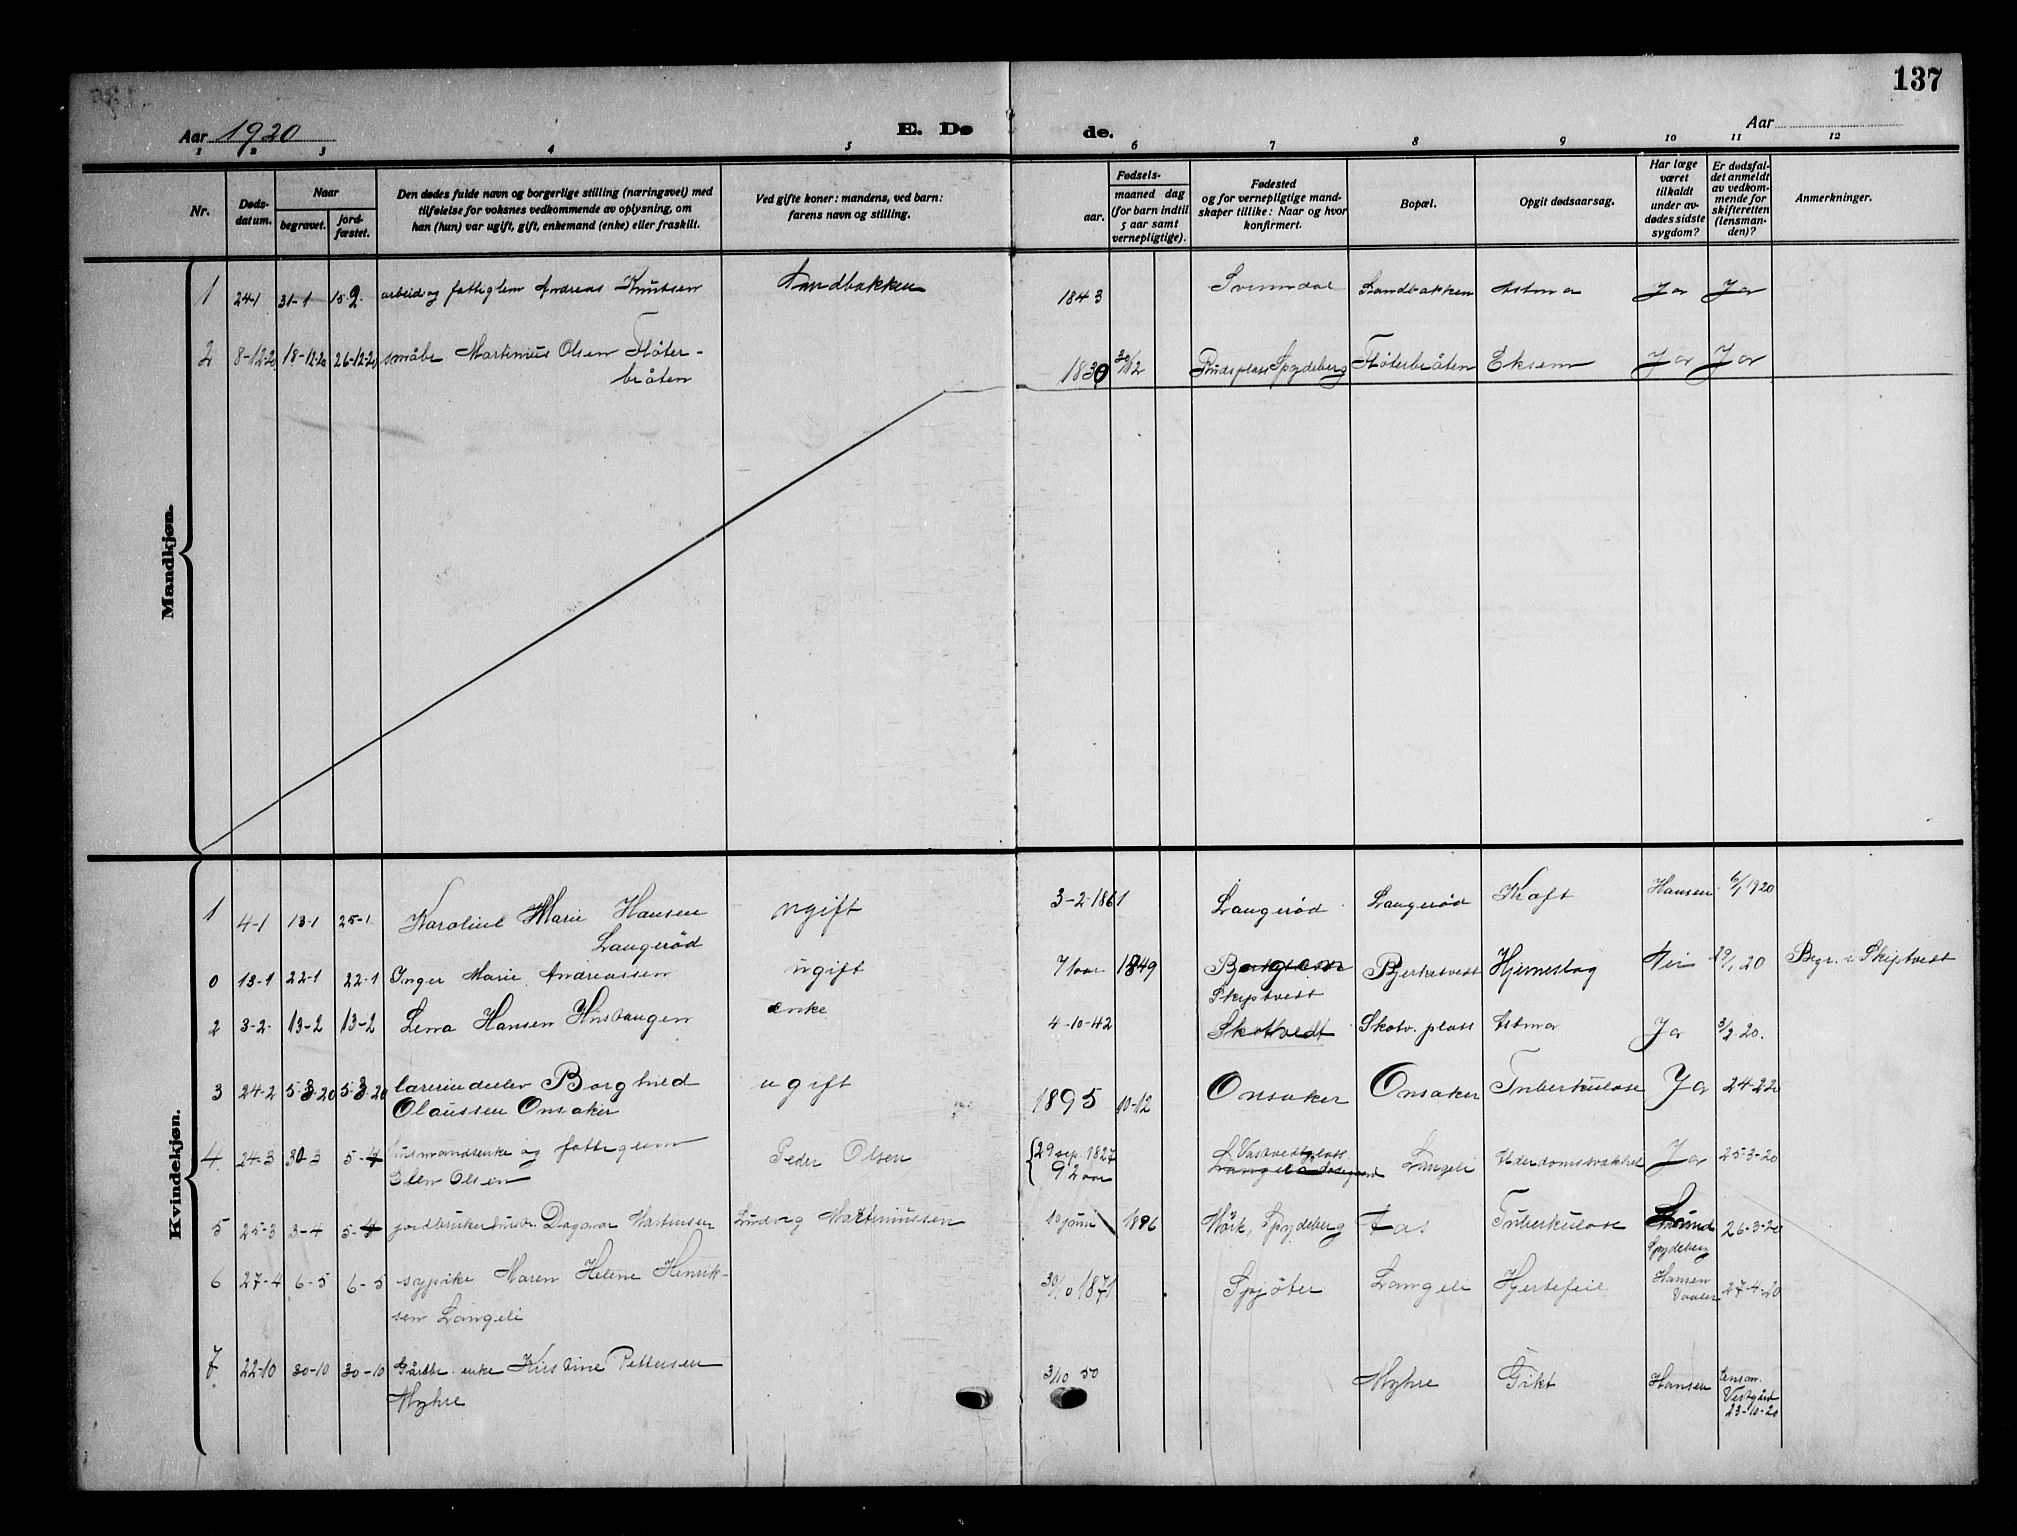 137
Aar 1920
E. Dø
de.
Aar
1 2 3 4 5 6 7 8 9 10 11 12
Nr.
Døds-
datum.
Naar
begravet.
jord-
fæstet.
Den dødes fulde navn og borgerlige stilling (næringsvei) med
tilføielse for voksnes vedkommende av oplysning, om
han (hun) var ugift, gift, enkemand (enke) eller fraskilt.
Ved gifte koner: mandens, ved barn:
farens navn og stilling.
Fødsels-
aar.
maaned dag
(for barn indtil
5 aar samt
vernepligtige).
Fødested
og for vernepligtige mand-
skaper tillike: Naar og hvor
konfirmert.
Bopæl.
Opgit dødsaarsag.
Har læge
været
tilkaldt
under av-
dødes sidste
sygdom?
Er dødsfal-
det anmeldt
av vedkom-
mende for
skifteretten
(lensman-
den)?
Anmerkninger.
Mandkjøn.
1 24-1 31-1 15-2. arbeid og fattiglem Andreas Knutsen Sandbakken 1843 Svenndal Sandbakken Astma Ja Ja
2 8-12-20 18-12-20 26-12-20 småbr Martinius Olsen Fløter-
bråten 1830 30/12 Rudsplass Spydeberg Fløterbråten Eksem Ja Ja
Kvindekjøn.
1 4-1 13-1 25-1 Karoline Marie Hansen
Langerød ugift 3-2-1861 Langerød Langerød Kræft Hansen 6/1 1920
0 13-1 22-1 22-1 Inger Marie Andreassen ugift 71 aar 1849 Borgeson
Skiptvedt Bjerketvedt Hjerneslag Nei 29/1 20 Begr. i Skiptvedt
2 3-2- 13-2 13-2 Lena Hansen enke 4-10-42 Skottvedt Skotv. plass Astma Ja 3/2 20.
3 24-2 5-3-20 5-3-20 lærerindeelev Borghild
Olaussen Onsaker ugift 1895 10-12 Onsaker Onsaker Tuberkulose Ja 24-2 20
4. 24-3 30-3 5-4 husmandsenke og fattiglem
Elen Olsen Peder Olsen 29 sep. 1827
92 aar Vastvedtplass Langeli Alderdomssvakhet Ja 25-3-20
5 25-3 3-4 5-4 jordbrukerhustr. Dagmar Martinsen Ludvig Martiniussen 10 juni 1896 Mørk, Spydeberg Aas Tuberkulose Lund
Spydeberg 26-3-20
6 27-4 6-5 6-5 sypike Maren Helene Henrik-
sen Langeli 30/10 1871 Spjøter Langeli Hjertefeil Hansen
Vaaler 27-4-20
7. 22-10 30-10 30-10 Gårdbr. enke Kirstine Pettersen
Myhre 3/10 50 Myhre Gikt Hansen Lensm.
Vestgård
23-10-20